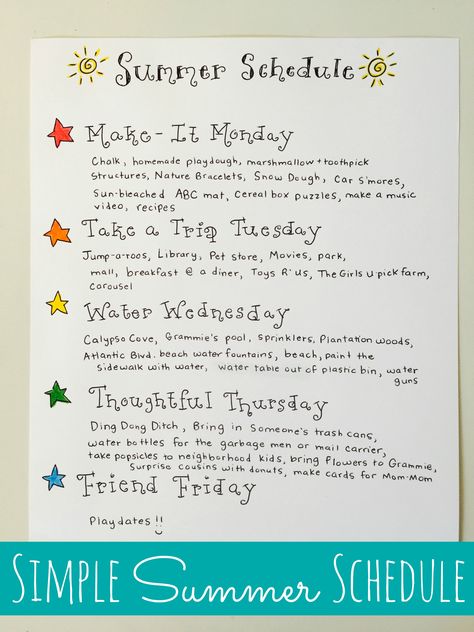 Summer Schedule
Make-It Monday
Chalk, homemade playdough, marshmallow + toothpick
structures, Nature Bracelets, Snow Dough, Car S'mores,
Sun-bleached ABC mat, Cereal box puzzles, make a music
video, recipes
Take a Trip Tuesday
Jump-a-roos, Library, Pet store, Movies, park,
mall, breakfast @ a diner, Toys R' Us, The Girls U-pick farm,
carousel
Water Wednesday
Calypso Cove, Grammie's pool, sprinklers, Plantation woods,
Atlantic Blvd. beach water fountains, beach, paint the
sidewalk with water, water table out of plastic bin, water
guns
Thoughtful Thursday
Ding Dong Ditch, Bring in Someone's trash cans,
water bottles for the garbage men or mail carrier,
take popsicles to neighborhood kids, bring flowers to Grammie,
Surprise cousins with donuts, make cards for Mom-Mom
Friend Friday
Playdates !!
SIMPLE Summer SCHEDULE